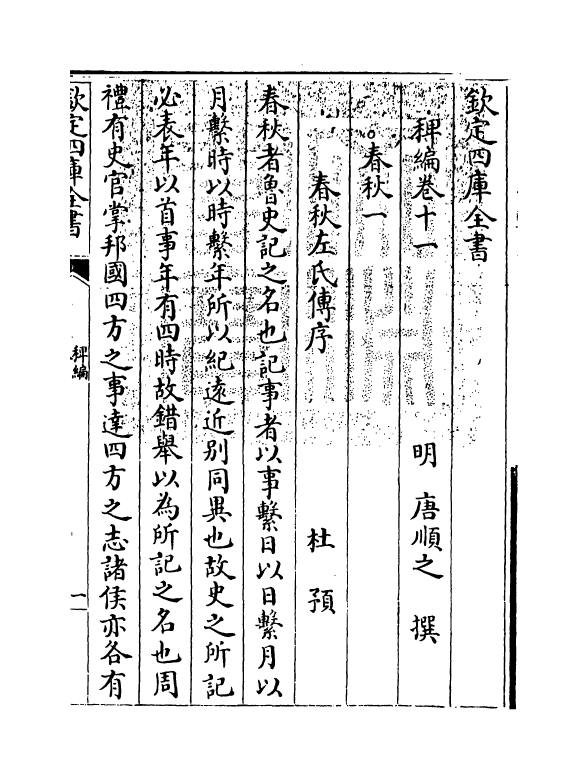 欽定四庫全書
稗編卷十一
明 唐順之 撰
春秋一
春秋左氏傳序
杜預
春秋者魯史記之名也記事者以事繫日以日繫月以
月繫時以時繫年所以紀遠近别同異也故史之所記
必表年以首事年有四時故錯舉以為所記之名也周
禮有史官掌邦國四方之事達四方之志諸侯亦各有
欽定四庫全書
稗編
一